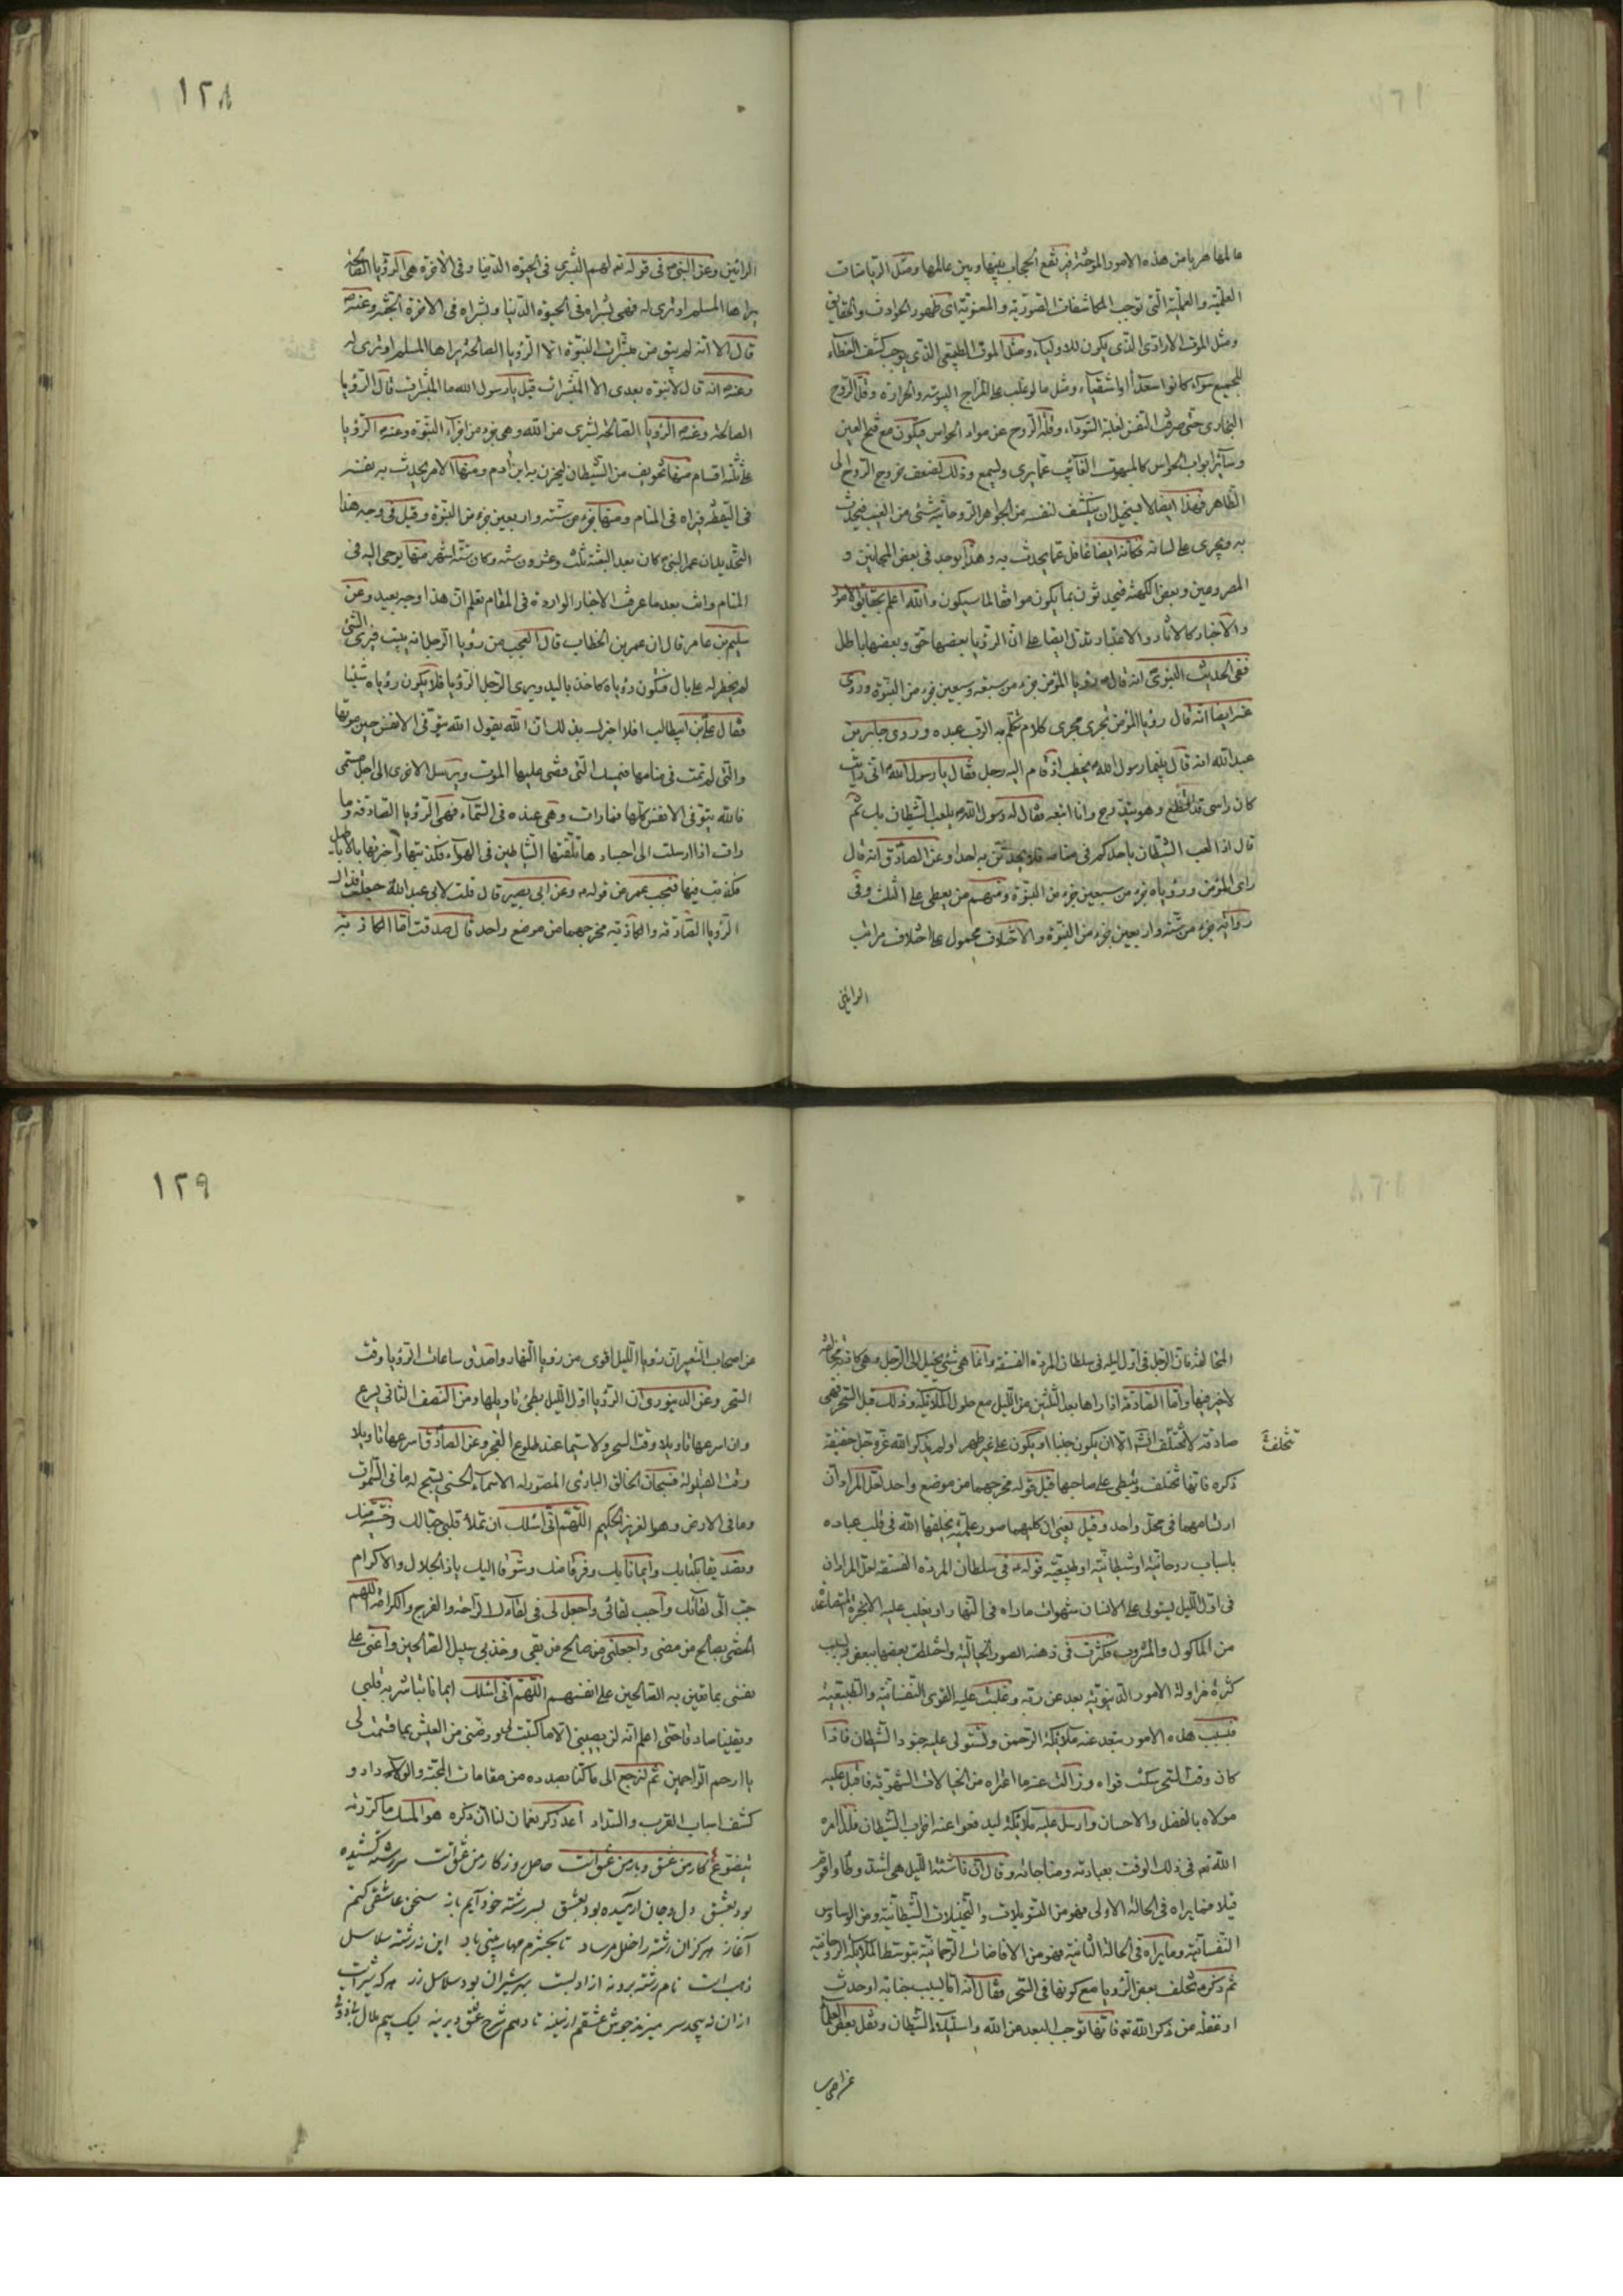 ١٢٨
عالمها هربا من هذه الامور الموحشة فيرتفع الحجاب بينها وبين عالمها ومثل الرياضات
العلمية والعملية التى توجب المكاشفات الصورية والمعنوية اى ظهور الحوادث والحقايق
ومثل الموت الارادى الذى يكون للاولياء ومثل الموت الطبيعى الذى يوجب كشف الغطاء
للجميع سواء كانوا سعداء او اشقياء ومثل ما لو غلب على المزاج اليبوسة والحرارة وقلة الروح
البخارى حتى صرف النفس لغلبة السوداء وقلة الروح عن مواد الحواس فيكون مع فتح العين
وساير ابواب الحواس كالمبهوت الغايب عما يرى ويسمع وذلك لضعف خروج الروح الى
الظاهر فهذا ايضا لا يستحيل ان ينكشف لنفسه من الجواهر الروحانية شئ من الغيب فيحدث
به ويجرى على لسانه فكانه ايضا غافل عما يحدث به وهذا يوجد فى بعض المجانين و
المصروعين وبعض الكهنة فيحدثون بما يكون موافقا لما سيكون والله اعلم بحقايق الامور
والاخبار كالاثار والاعتبار تدل ايضا على ان الرؤيا بعضها حق وبعضها باطل
ففى الحديث النبوى انه قال رؤيا المؤمن جزء من سبعة وسبعين جزء من النبوة وروى
عنه ايضا انه قال رؤيا المؤمن تجرى مجرى كلام تكلم به الرب عبده وروى جابر بن
عبد الله انه قال بينما رسول الله يخطب اذ قام اليه رجل فقال يا رسول الله انى رايت
كان راسى قد قطع وهو يتدحرج وانا اتبعه فقال له رسول الله يلعب الشيطان بك ثم
قال اذا لعب الشيطان باحدكم فى منامه فلا يحدثن به احدا وعن الصادق انه قال
راى المؤمن ورؤياه جزء من سبعين جزء من النبوة ومنهم من يعطى على الثلث وفى
رواية جزء من ستة واربعين جزء من النبوة والاختلاف محمول على اختلاف مراتب
الرائين
الرائين وعن النبى فى قوله تع لهم البشرى فى الحيوة الدنيا وفى الاخرة هى الرؤيا الصالحة
يراها المسلم او ترى له فهى بشراه فى الحيوة الدنيا وبشراه فى الاخرة الجنة وعنه
قال الا انه لم يبق من مبشرات النبوة الا الرؤيا الصالحة يراها المسلم او ترى له
وعنه انه قال لا نبوة بعدى الا المبشرات قيل يا رسول الله ما المبشرات قال الرؤيا
الصالحة وعنه الرؤيا الصالحة بشرى من الله وهى جزء من اجزاء النبوة وعنه الرؤيا
على ثلثة اقسام منها تخويف من الشيطان ليحزن به ابن ادم ومنها الامر يحدث به نفسه
فى اليقظة فيراه فى المنام ومنها جزء من ستة واربعين جزء من النبوة وقيل فى وجه هذا
التحديد ان عمر النبى كان بعد البعثة ثلث وعشرون سنة وكان ستة اشهر منها يوحى اليه فى
المنام وانت بعد ما عرفت الاخبار الواردة فى المقام تعلم ان هذا وجه بعيد وعن
سليم بن عامر قال ان عمر بن الخطاب قال العجب من رؤيا الرجل انه يبيت فيرى الشئ
لم يخطر له على بال فتكون رؤياه كاخذ باليد ويرى الرجل الرؤيا فلا يكون رؤياه شيئا
فقال على بن ابيطالب افلا اخبرك بذلك ان الله يقول الله يتوفى الانفس حين موتها
والتى لم تمت فى منامها فيمسك التى قضى عليها الموت ويرسل الاخرى الى اجل مسمى
فالله يتوفى الانفس كلها فما رات وهى عنده فى السماء فهى الرؤيا الصادقة وما
رات اذا ارسلت الى اجسادها تلقتها الشياطين فى الهواء فكذبتها واخبرتها بالاباطيل
فكذبت فيها فتعجب عمر من قوله وعن ابى بصير قال قلت لابى عبد الله جعلت فداك
الرؤيا الصادقة والكاذبة مخرجهما من موضع واحد قال صدقت اما الكاذبة
١٢٩
المختلفة فان الرجل فى اول ليله فى سلطان المردة الفسقة وانما هى شئ يخيل الى الرجل وهى كاذبة مخالفة
لا خير فيها واما الصادقة اذا راها بعد الثلثين من الليل مع حلول الملائكة وذلك قبل السحر فهى
صادقة لا تختلف انشاء الا ان يكون جنبا او يكون على غير طهر او لم يذكر الله عز وجل حقيقة
تختلف
ذكره فانها تختلف وتبطى على صاحبها قيل قوله مخرجهما من موضع واحد لعل المراد ان
ارتسامهما فى محل واحد وقيل يعنى ان كليهما صور علمية يخلقها الله فى قلب عباده
باسباب روحانية او شيطانية او طبيعية قوله فى سلطان المردة الفسقة لعل المراد ان
فى اول الليل يستولى على الانسان شهوات ما راه فى النهار او يغلب عليه الابخرة المتصاعدة
من الماكول والمشروب فكثرت فى ذهنه الصور الخيالية واختلطت بعضها ببعض وبسبب
كثرة مزاولة الامور الدنيوية بعد عن ربه وغلبت عليه القوى النفسانية والطبيعية
فبسبب هذه الامور يتبعد عنه ملائكة الرحمن وتستولى عليه جنود الشيطان فاذا
كان وقت السحر سكنت قواه وزالت عنه ما اعتراه من الخيالات الشهوية فاقبل عليه
مولاه بالفضل والاحسان وارسل عليه ملائكة ليدفعوا عنه احزاب الشيطان فلذا امره
الله تع فى ذلك الوقت بعبادته ومناجاته وقال ان ناشئة الليل هى اشد وطأ واقوم
قيلا فما يراه فى الحالة الاولى فهو من التسويلات والتخييلات الشيطانية ومن الوساوس
النفسانية وما يراه فى الحالة الثانية فهو من الافاضات الرحمانية بتوسط الملائكة الروحانية
ثم ذكر تخلف بعض الرؤيا مع كونها فى السحر فقال انه اما بسبب جنابة او حدث
او غفلة عن ذكر الله تع فانها توجب البعد عن الله واستيلاء الشيطان ونقل بعض العلماء
عن اصحاب
عن اصحاب التعبير ان رؤيا الليل اقوى من رؤيا النهار واصدق ساعات الرؤيا وقت
السحر وعن الدينورى ان الرؤيا اول الليل يبطئ تاويلها ومن النصف الثانى يسرع
وان اسرعها تاويلا وقت السحر ولا سيما عند طلوع الفجر وعن الصادق اسرعها تاويلا
وقت القيلولة فسبحان الخالق البارئ المصور له الاسماء الحسنى يسبح له ما فى السموات
وما فى الارض وهو العزيز الحكيم اللهم انى اسئلك ان تملأ قلبى حبا لك وخشية منك
وتصديقا بكتابك وايمانا بك وفرقا منك وشوقا اليك يا ذا الجلال والاكرام
حبب الى لقائك واحبب لقائى واجعل لى فى لقاءك الراحة والفرج والكرامة اللهم
الحقنى بصالح من مضى واجعلنى من صالح من بقى وخذ بى سبيل الصالحين واعنى على
نفسى بما تعين به الصالحين على انفسهم اللهم انى اسئلك ايمانا تباشر به قلبى
ويقينا صادقا حتى اعلم انه لن يصيبنى الا ما كتبت لى ورضنى من العيش بما قسمت لى
يا ارحم الراحمين ثم لنرجع الى ما كنا بصدده من مقامات المحبة والوداد و
كشف اسباب القرب والسداد اعد ذكر نعمان لنا ان ذكره هو المسك ما كررته
يتضوع كار من عشق وبار من عشق است حاصل روزكار من عشق است سر رشته كشيده
بود بعشق دل وجان آرميده بود بعشق بسر رشته خود آيم باز سخن عاشقى كنم
آغاز هر كزان رشته را خلل مرساد تا بحشرم مهاب بينى باد اين نه رشته سلاسل
ذهب است نام رشته بر و نه از ادبست بهر شيران بود سلاسل زر هر كه شير است
ازان نه پيچد سر ميزند جوش عشقم از سينه تا دهم شرح عشق ديرينه ليك بيم ملال